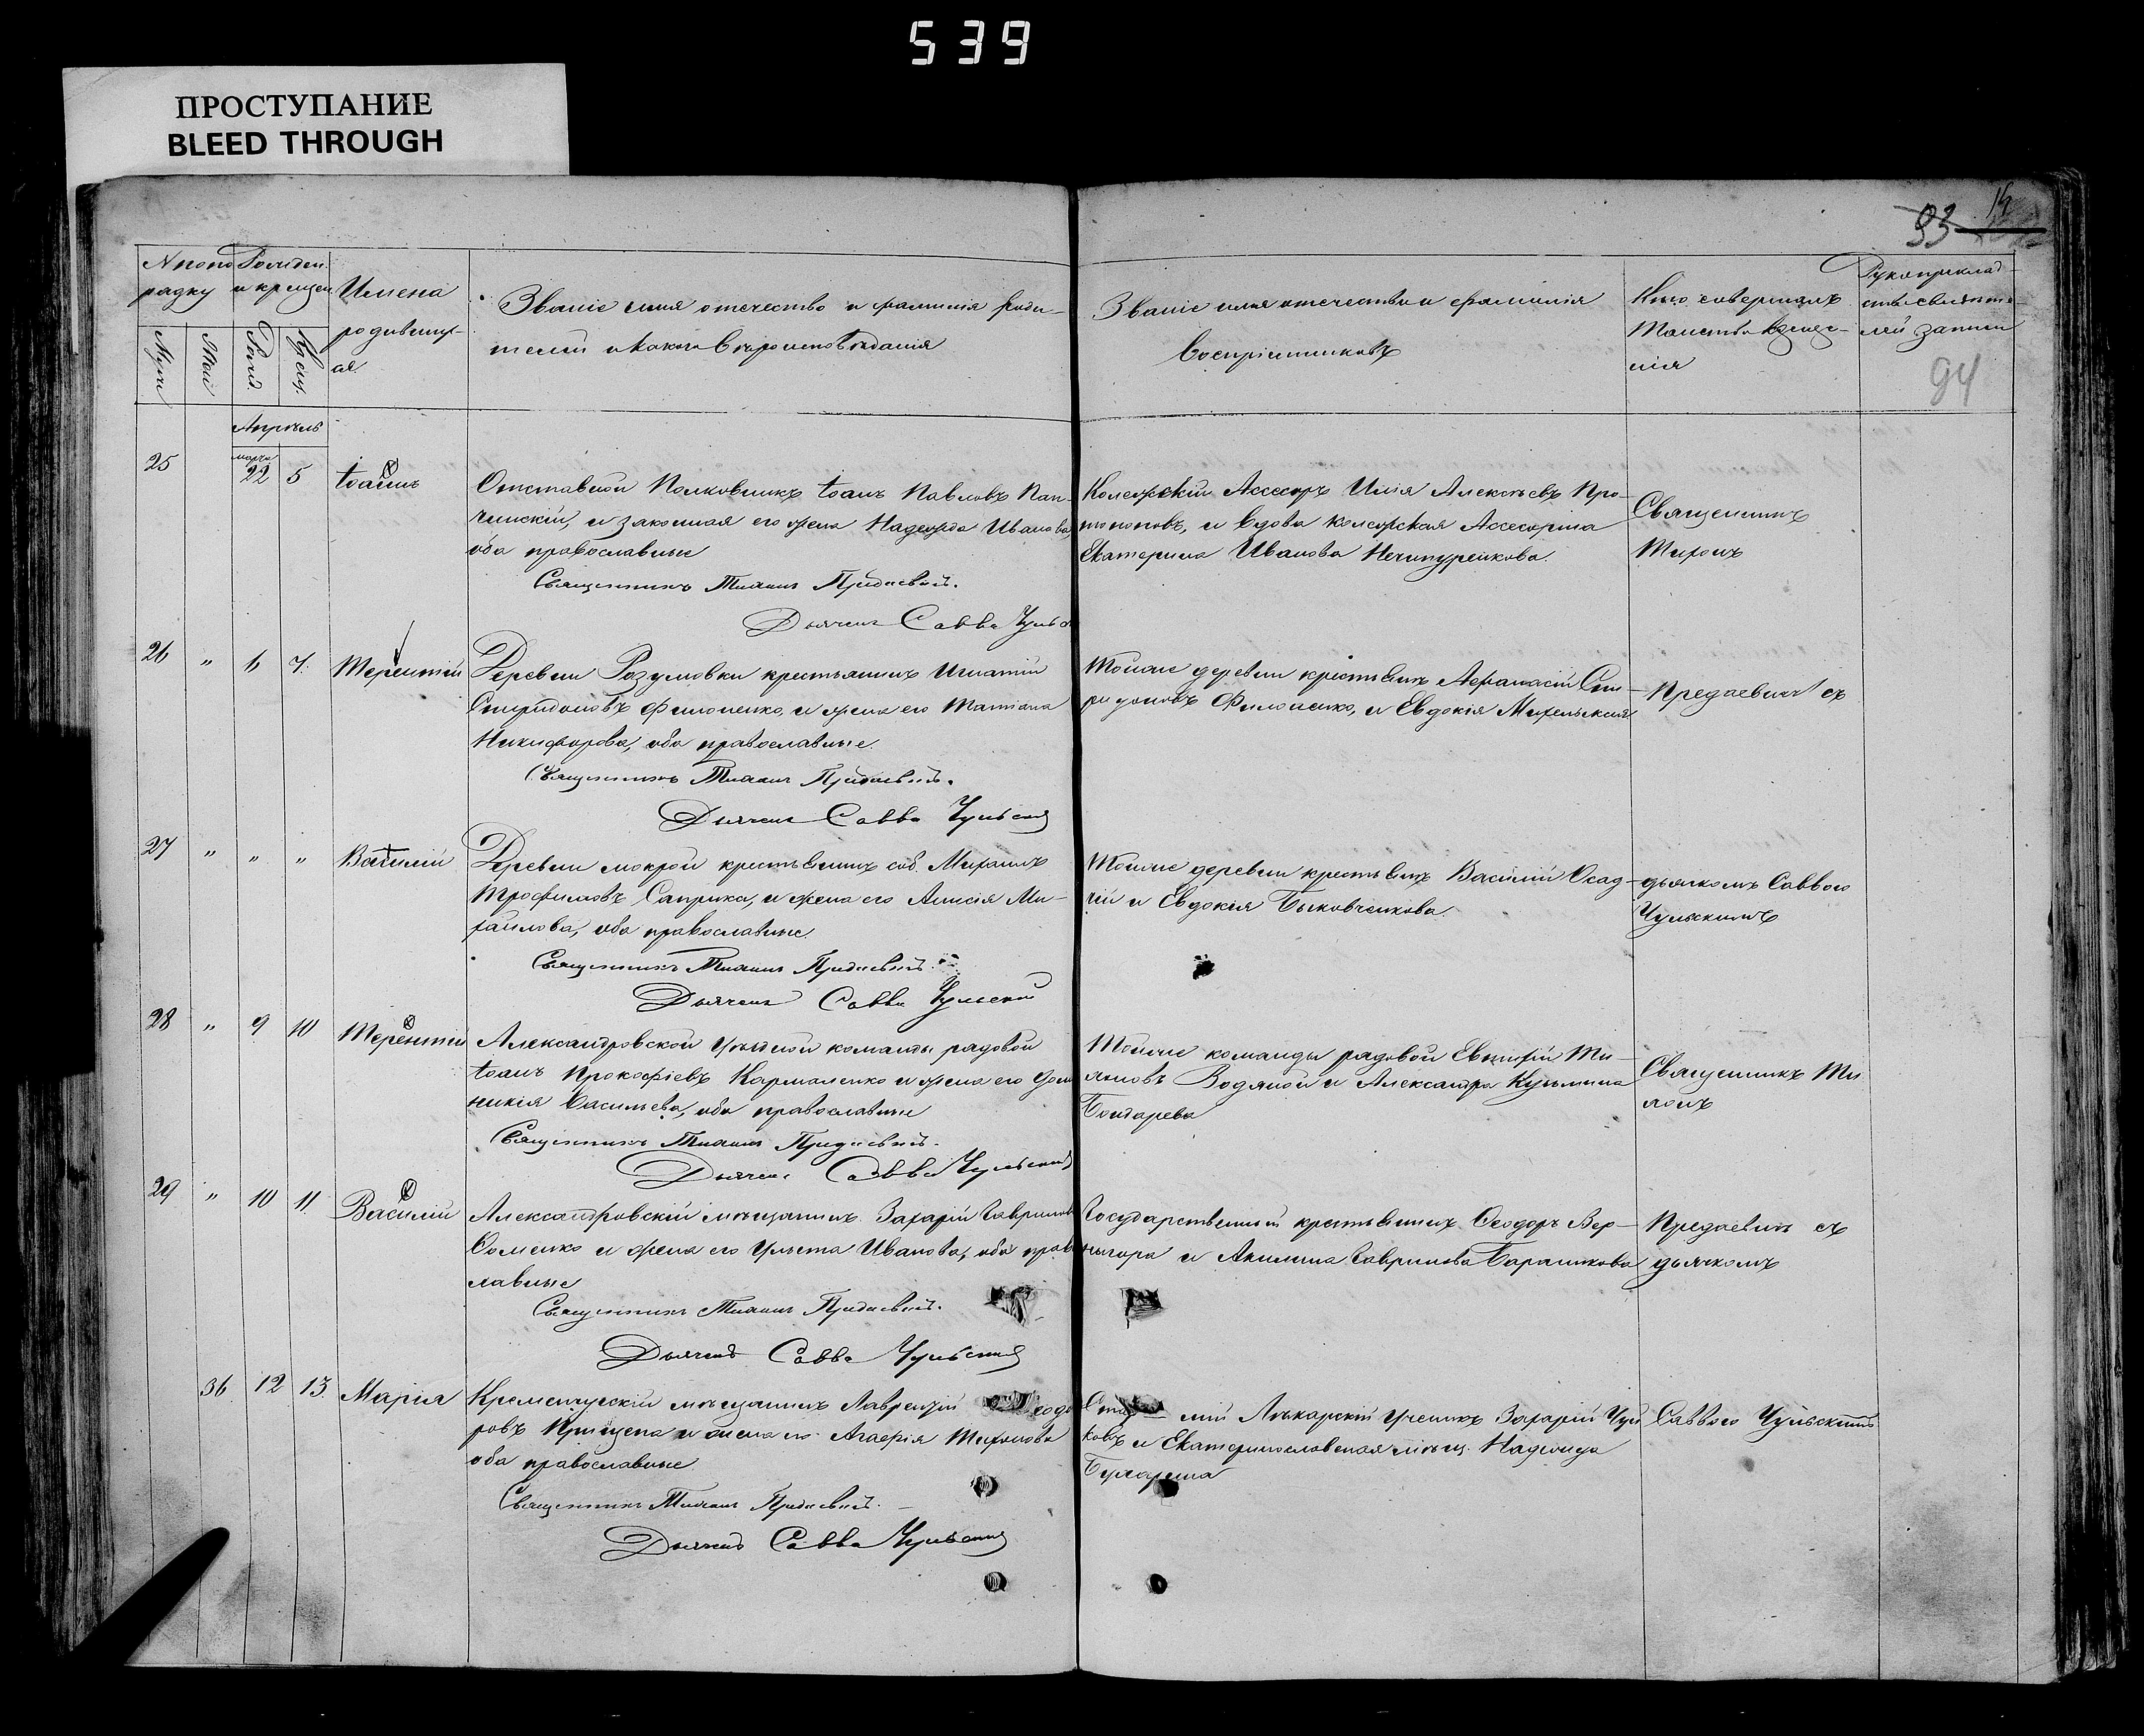 539
ПРОСТУПАНИЕ
BLEED THROUGH
14
93
94
N по по
рядку
Муж
Жен
Рожден
и крещен
Рожд.
Крещ.
Имена
родивших-
ся.
Званіе имя отечество и фамилія роди-
телей и какого вѣроисповѣданія
Званіе имя отечество и фамилія
воспріемниковъ
Кто совершалъ
таинство креще-
нія
Рукоприклад-
ство свидѣте-
лей записи
Апрѣль
25 марта 22 5 Іоаннъ
Отставной Полковникъ Іоанъ Павловъ Пап-
чинскій, и законная его жена Надежда Иванова,
оба православные
Священникъ Тихонъ Придаевичъ.
Дьячекъ Савва Чульс
Колежскій Ассесоръ Илія Алексѣевъ Про-
топоповъ, и вдова колежская Ассесорша
Екатерина Иванова Нечипуренкова.
Священникъ
Тихонъ
26 " 6 7. Терентій
Деревни Розумовки крестьянинъ Игнатій
Спиридоновъ Филоненко, и жена его Татіана
Никифорова, оба православные.
Священникъ Тихонъ Придаевичъ.
Дьячекъ Савва Чульскій
Тойже деревни крестьянинъ Афанасій Спи-
ридоновъ Филоненко, и Евдокія
Предаевичъ съ
27 " " " Василій
Деревни мокрой крестьянинъ соб. Михаилъ
Трофимовъ Саприка, и жена его Анисія Ми-
хайлова, оба православные.
Священникъ Тихонъ Придаевичъ.
Дьячекъ Савва Чульскій
Тойже деревни крестьянинъ Василій Осад-
чій и Евдокія Быковченкова.
дьячкомъ Саввою
Чульскимъ
28 " 9 10 Терентій
Александровской уѣздной команды рядовой
Іоанъ Прокофіевъ Кармаленко и жена его Дом
никія Васильева, оба православные
Священникъ Тихонъ Придаевичъ.
Дьячекъ Савва Чульскій
Тойже команды рядовой Евтихій Ти-
Водяной и Александра Кузьмина
Бондарева
Священникъ Ти
хонъ
29 " 10 11 Василій
Александровскій мѣщанинъ Захарій Гаврилов
Оленко и жена его Улита Иванова, оба прав
лавные
Священникъ Тихонъ Придаевичъ.
Дьячекъ Савва Чульскій
Государственный крестьянинъ Феодоръ Вер-
нигора и Акилина Гаврилова Барашкова
Предаевичъ съ
дьячкомъ
36 12 13. Марія
Кременчугскій мѣщанинъ Лаврентій еодо
ровъ Прищепа и жена его Агафія Тихонова
оба православные.
Священникъ Тихонъ Придаевичъ.
Дьячекъ Савва Чульскій
шій Лѣкарскій ученикъ Захарій Чуй
ковъ и Екатеринославская мѣщ. Надежда
Бухарина
Саввою Чульскимъ